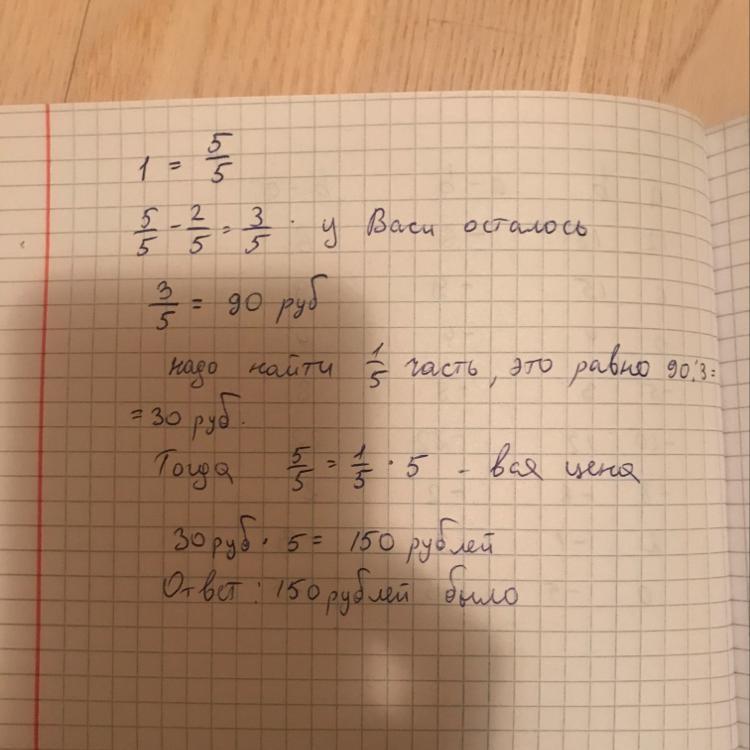 1 = 5/5
5/5 - 2/5 = 3/5 · у Васи осталось
3/5 = 90 руб
надо найти 1/5 часть, это равно 90:3=
=30 руб.
Тогда 5/5 = 1/5 · 5 - вая цена
30 руб · 5 = 150 рублей
Ответ: 150 рублей было